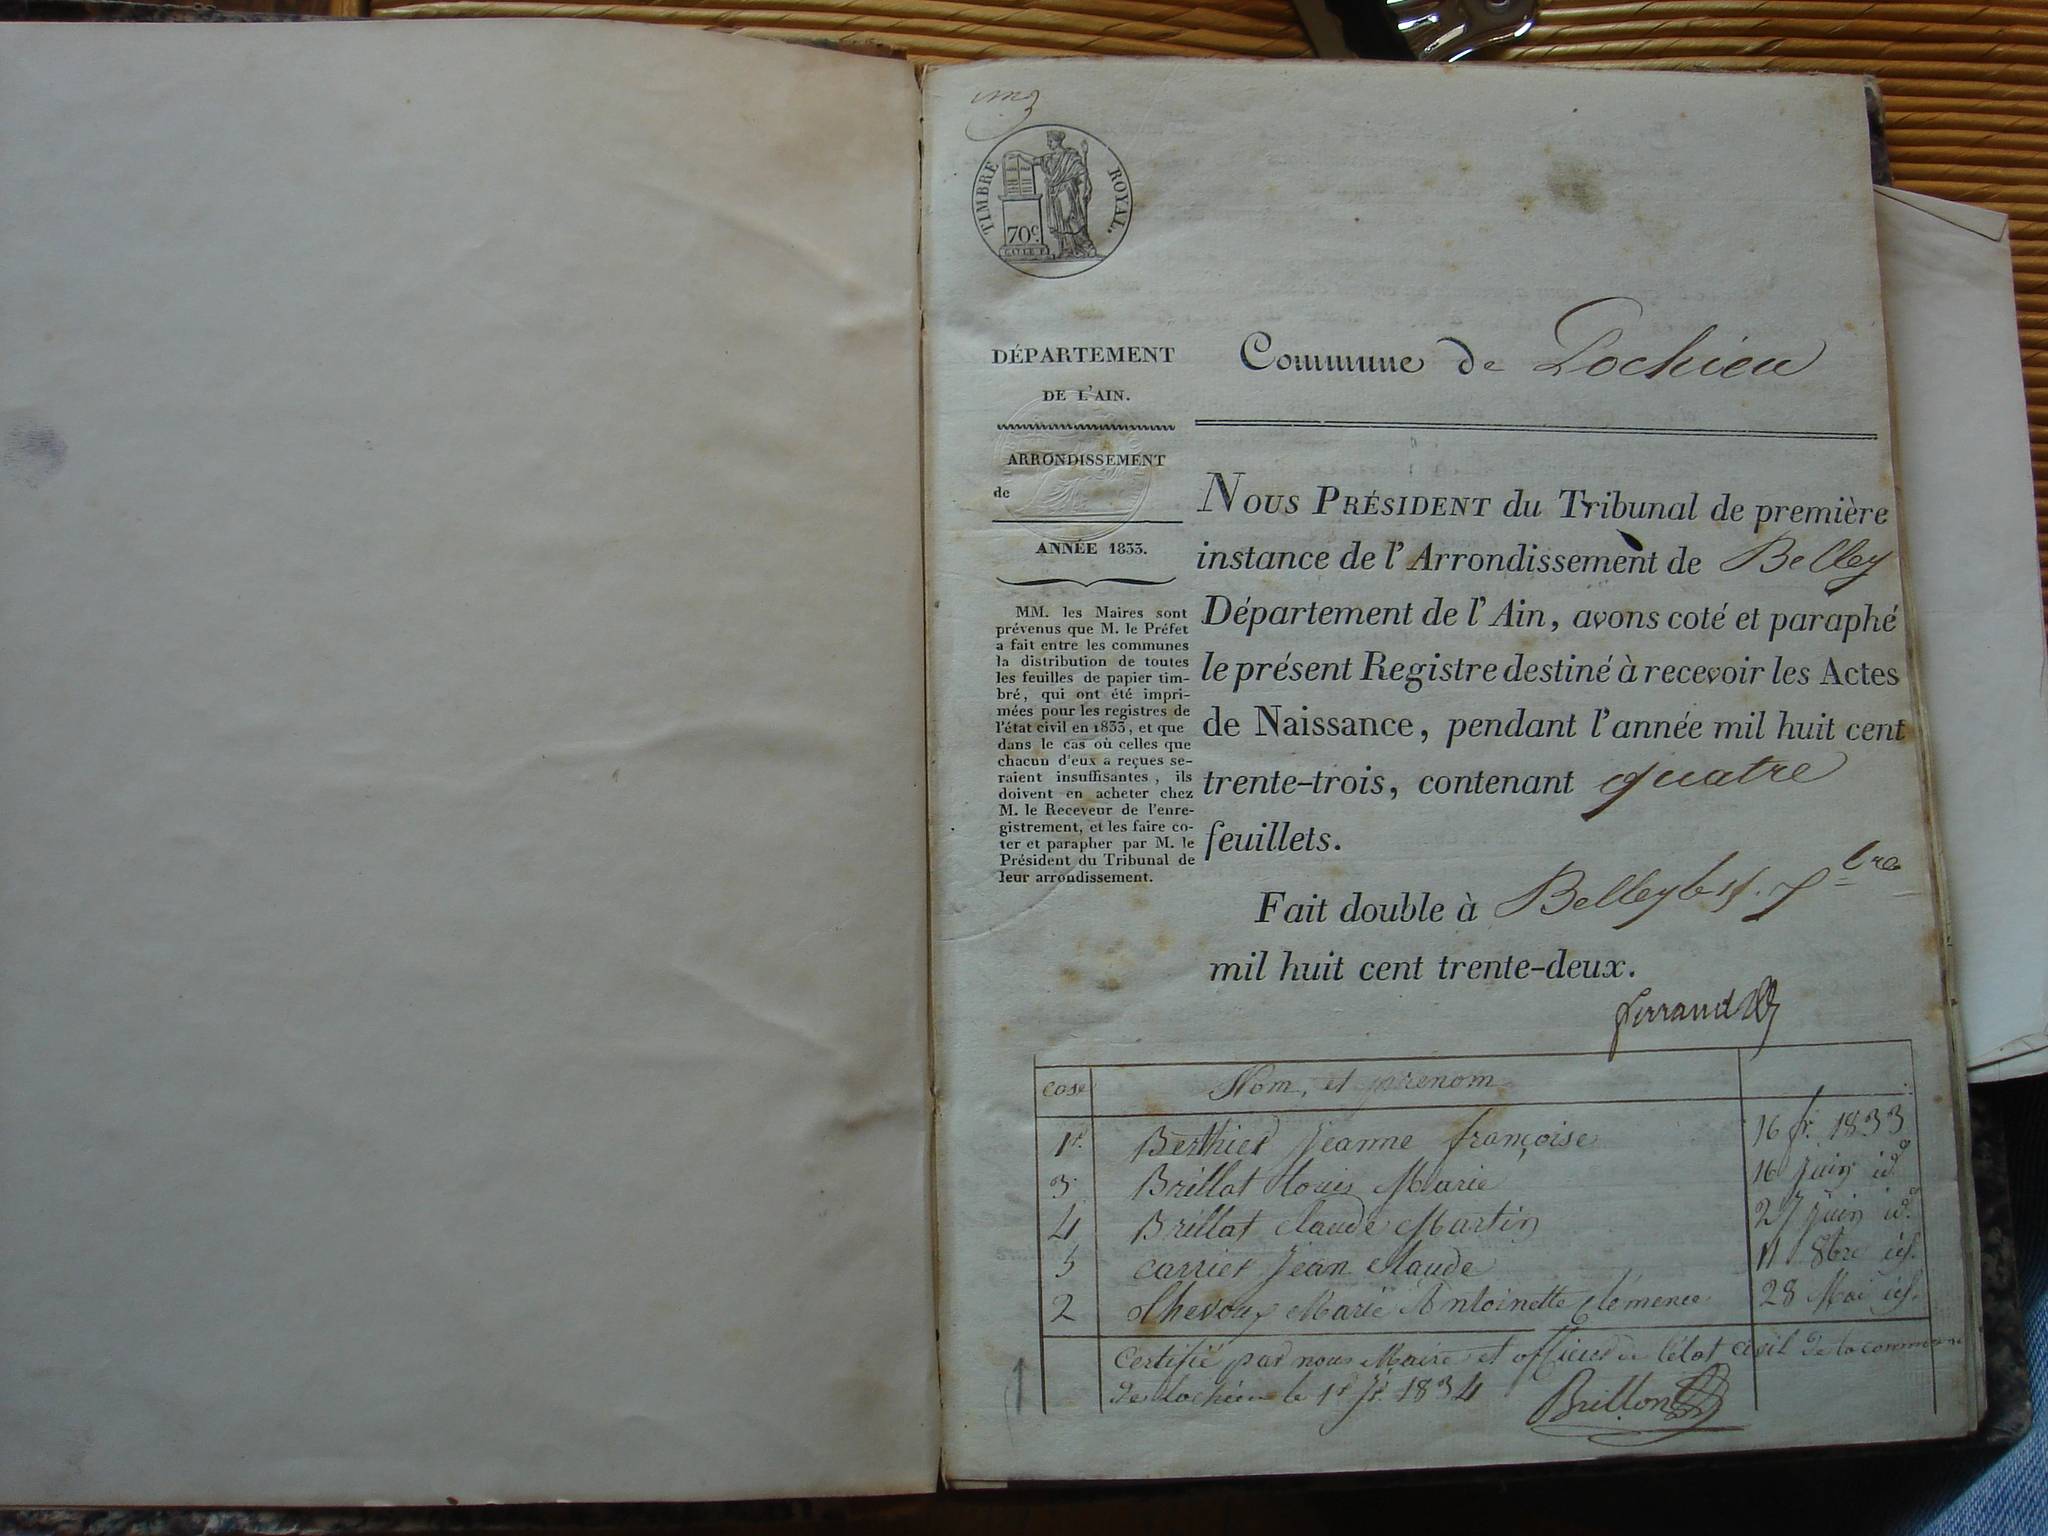 TIMBRE ROYAL.
70 c.
DÉPARTEMENT
DE L'AIN.
ARRONDISSEMENT
de
ANNÉE 1833.
MM. les Maires sont
prévenus que M. le Préfet
a fait entre les communes
la distribution de toutes
les feuilles de papier tim-
bré, qui ont été impri-
mées pour les registres de
l'état civil en 1833, et que
dans le cas où celles que
chacun d'eux a reçues se-
raient insuffisantes, ils
doivent en acheter chez
M. le Receveur de l'enre-
gistrement, et les faire co-
ter et parapher par M. le
Président du Tribunal de
leur arrondissement.
Commune de Lochieu
NOUS PRÉSIDENT du Tribunal de première
instance de l'Arrondissement de Belley
Département de l'Ain, avons coté et paraphé
le présent Registre destiné à recevoir les Actes
de Naissance, pendant l'année mil huit cent
trente-trois, contenant quatre
feuillets.
Fait double à Belley
mil huit cent trente-deux.
ferrand
case Nom, et prenom
1r. Berthier Jeanne françoise 16 fr. 1833
3 Brillat Louis Marie 16 Juin id.
4 Brillat Claude Martin 27 Juin id.
5 Carrier Jean Claude 11 8bre id.
2 Chevoux Marie Antoinette Clémence 28 Mai id.
Certifié par nous Maire et officier de l'état civil de la commune
de lochieu le 1r Jr. 1834 Brillon